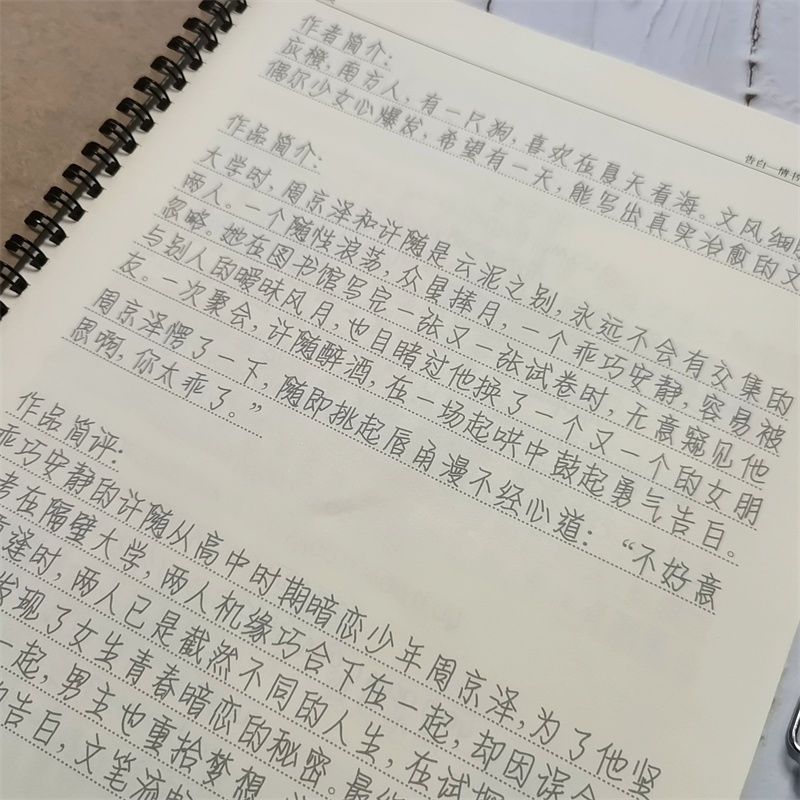 告白一情书
作者简介：
应橙，南方人，有一只狗，喜欢在夏天看海。文风细
偶尔少女心爆发，希望有一天，能写出真实治愈的文
作品简介：
大学时，周京泽和许随是云泥之别，永远不会有交集的
两人。一个随性浪荡，众星捧月，一个乖巧安静，容易被
忽略。她在图书馆写完一张又一张试卷时，无意窥见他
与别人的暧昧风月，也目睹过他换了一个又一个的女朋
友。一次聚会，许随醉酒，在一场起哄中鼓起勇气告白。
周京泽愣了一下，随即挑起唇角漫不经心道：“不好意
思啊，你太乖了。”
作品简评：
乖巧安静的许随从高中时期暗恋少年周京泽，为了他坚
考在隔壁大学，两人机缘巧合下在一起，却因误会
逢时，两人已是截然不同的人生，在试探
发现了女生青春暗恋的秘密。最终
一起，男主也重拾梦想，
的告白，文笔流畅